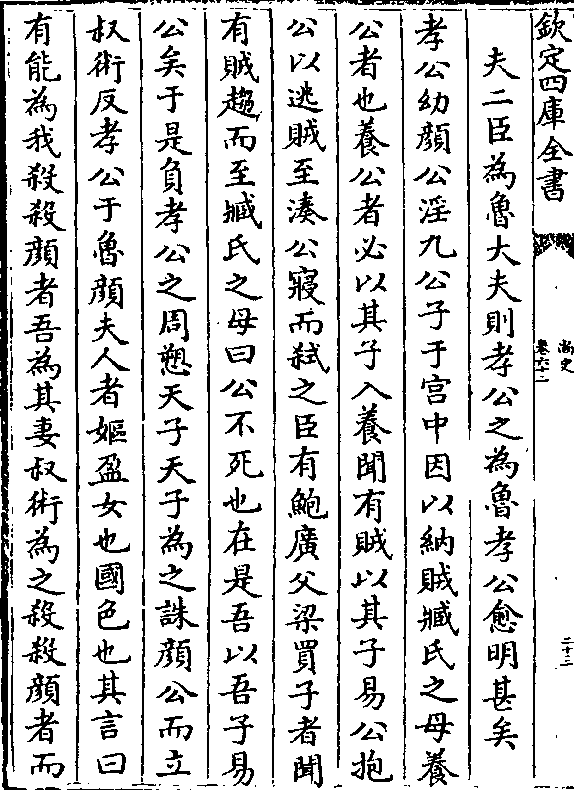 欽定四庫全書
尚史
卷六十二
二十三
夫二臣為魯大夫則孝公之為魯孝公愈明甚矣
孝公幼顔公淫九公子于宫中因以納賊臧氏之母養
公者也養公者必以其子入養聞有賊以其子易公抱
公以逃賊至湊公寢而弑之臣有鮑廣父梁買子者聞
有賊趨而至臧氏之母曰公不死也在是吾以吾子易
公矣于是負孝公之周愬天子天子為之誅顔公而立
叔術反孝公于魯顔夫人者嫗盈女也國色也其言曰
有能為我殺殺顔者吾為其妻叔術為之殺殺顔者而